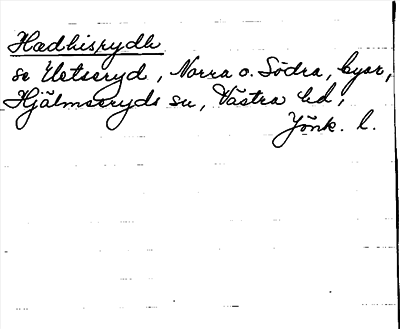 Hædhisrydh
se Uetseryd, Norra o. Södra, byar,
Hjälmseryds sn, Västra hd,
Jönk. l.